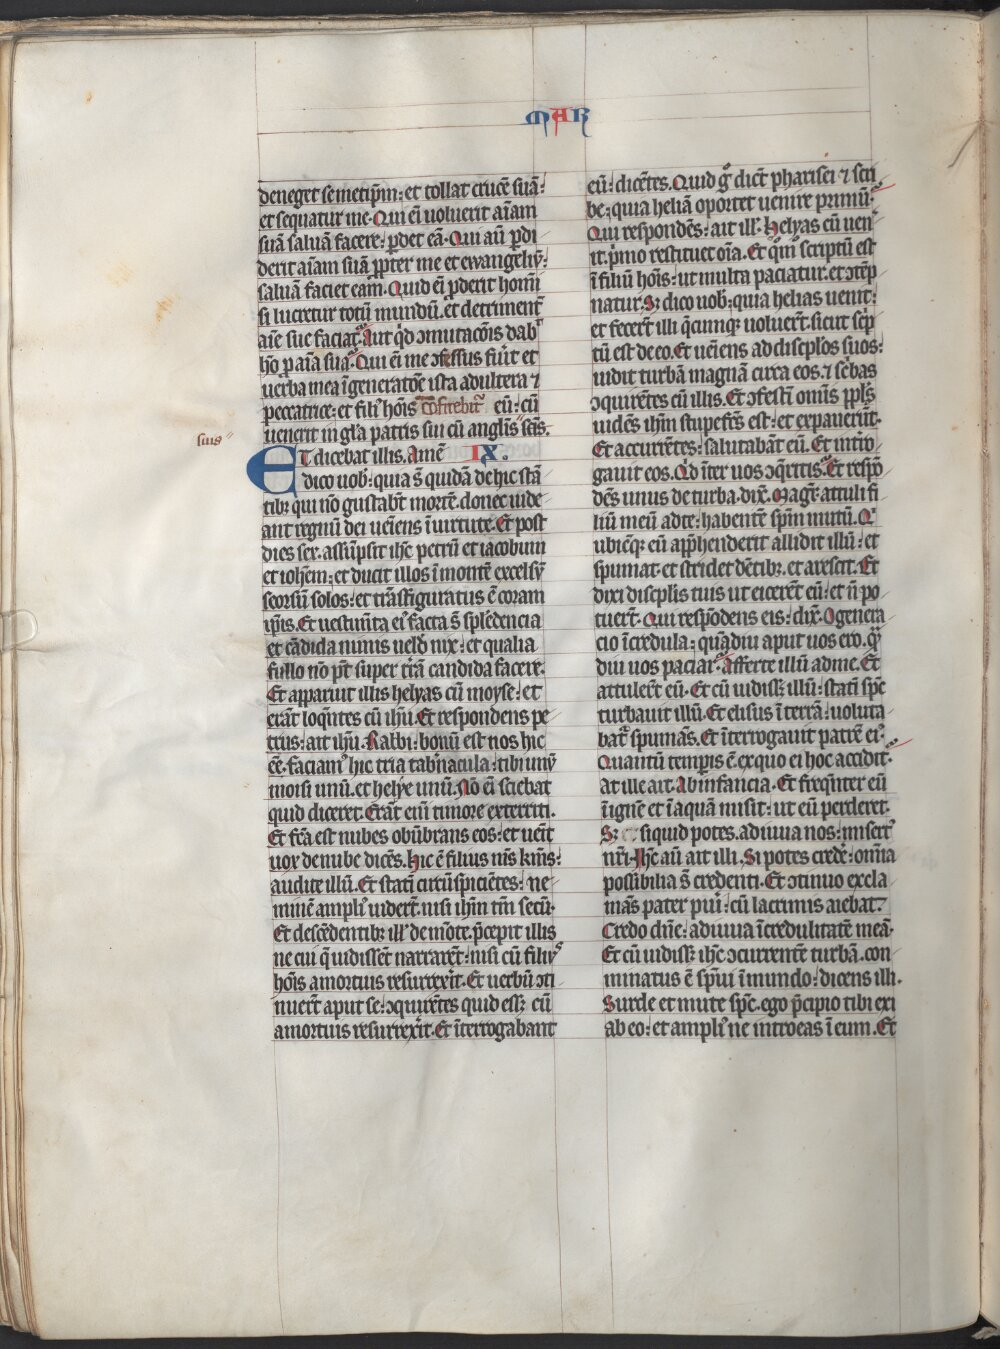 MAR
deneget semetip̄m: et tollat crucē suā:
et sequatur me. Qui eī uoluerit aīam
suā saluā facere: ꝑdet eā. Qui aū ꝑdi
derit aīam suā ꝓpter me et ewangeliꝰ:
saluā faciet eam. Quid eī ꝓderit homī
si lucretur totū mundū. et detrimentˉ
aīe sue faciat. Aut qͥd ↄmutacōis dabˀ
hō ꝓ aīa sua. Qui eī me ↄfessus fiūt et
uerba mea ī generatōe ista adultera ⁊
peccatrice: et filiˀ hōis ↄfitebitˀ eū: cū
uenerit in gl̄a patris sui cū angl̄is scīs.
sius
ET dicebat illis. Amē IX.
dico uob̄: quia s̄ quidā de hic stā
tibꝫ qui nō gustabt̄ mortē. donec uide
ant regnū dei ueīens ī uirtute. Et post
dies sex. assūpsit ih̄c petrū et iacobum
et ioh̄em: et ducit illos ī montē excelsꝰ
seorsū solos: et trāsfiguratus ē coram
ip̄is. Et uestim̄ta eiˀ facta s̄ splēdencia
et cādida nimis uelđ nix: et qualia
fullo nō pt̄ super t̄rā candida facere.
Et apparuit illis helyas cū moyse: et
erāt loqn̄tes cū ih̄u. Et respondens pe
trus: ait ih̄u. Rabbi: bonū est nos hic
eē. faciamˀ hic tria tab̄nacula: tibi unꝰ
moisi unū. et helye unū. Nō eī sciebat
quid diceret. Erāt enī timore exterriti.
Et fc̄a est nubes obūbrans eos: et ueīt
uox de nube dicēs. Hic ē filius m̄s km̄s:
audite illū. Et statī circūspiciētes: ne
minē ampliˀ uidert̄. nisi ih̄m tm̄ secū.
Et descēdentibꝫ illˀ de mōte. p̄cepit illis
ne cui q̄ uidissēt narrarēt: nisi cū filiꝰ
hōis a mortuis resurrexit. Et uerbū ↄti
nuert̄ aput se: ↄquirētes quid essꝫ cū
a mortuis resurrexit. Et īterrogabant
eū: dicētes. Quid gͦ dict̄ pharisei ⁊ scri
be: quia heliā oportet uenire primū.
Qui respondēs: ait illˀ. Helyas cū uen
it. p̍mo restituet oīa. Et qm̄ scriptū est
ī filiū hōis: ut multa paciatur. et ↄtēp
natur. Sꝫ dico uob̄: quia helias uenit:
et fecert̄ illi q̄cunqꝫ uoluert̄. sicut sc̄p
tū est de eo. Et ueīens ad discipl̄os suos:
uidit turbā magnā circa eos. ⁊ sc̄bas
ↄquirētes cū illis. Et ↄfestī om̄is ppl̄s
uidēs ih̄m stupefc̄s est: et expauerūt.
Et accurrētes: salutabāt eū. Et intro
gauit eos. Qͥd īter uos ↄq̄ritis. Et respō
dēs unus de turba. dix̄. Magr̄: attuli fi
liū meū ad te: habentē sp̄m mutū. Qͥ
ubicūqꝫ eū app̄henderit allidit illū: et
spumat. et stridet dētibꝫ. et arescit. Et
dixi discipl̄is tuis ut eicerēt eū: et n̄ po
tuert̄. Qui respōdens eis: dix̄. O genera
cio īcredula: quādiu aput uos ero. qͣm
diu uos paciar. Afferte illū ad me. Et
attulert̄ eū. Et cū uidissꝫ illū: statī sp̄c
turbauit illū. Et elisus ī terrā: uoluta
batˀ spumās. Et īterrogauit patrē eiˀ.
Quantū tempis ē ex quo ei hoc accidit.
At ille ait. Ab infancia. Et freqn̄ter eū
ī ignē et ī aquā misit: ut eū perderet.
Sꝫ siquid potes. adiuua nos: misertˀ
nr̄i. Ih̄c aū ait illi. Si potes credē: omīa
possibilia s̄ credenti. Et ↄtinuo excla
mās pater pueri: cū lacrimis aiebat.
Credo dn̄e: adiuua īcredulitatē meā.
Et cū uidissꝫ ih̄c ↄcurrentē turbā. con
minatus ē sp̄ui īmundo: dicens illi.
Surde et mute sp̄c. ego p̄cipio tibi exi
ab eo: et ampliˀ ne introeas ī eum. Et